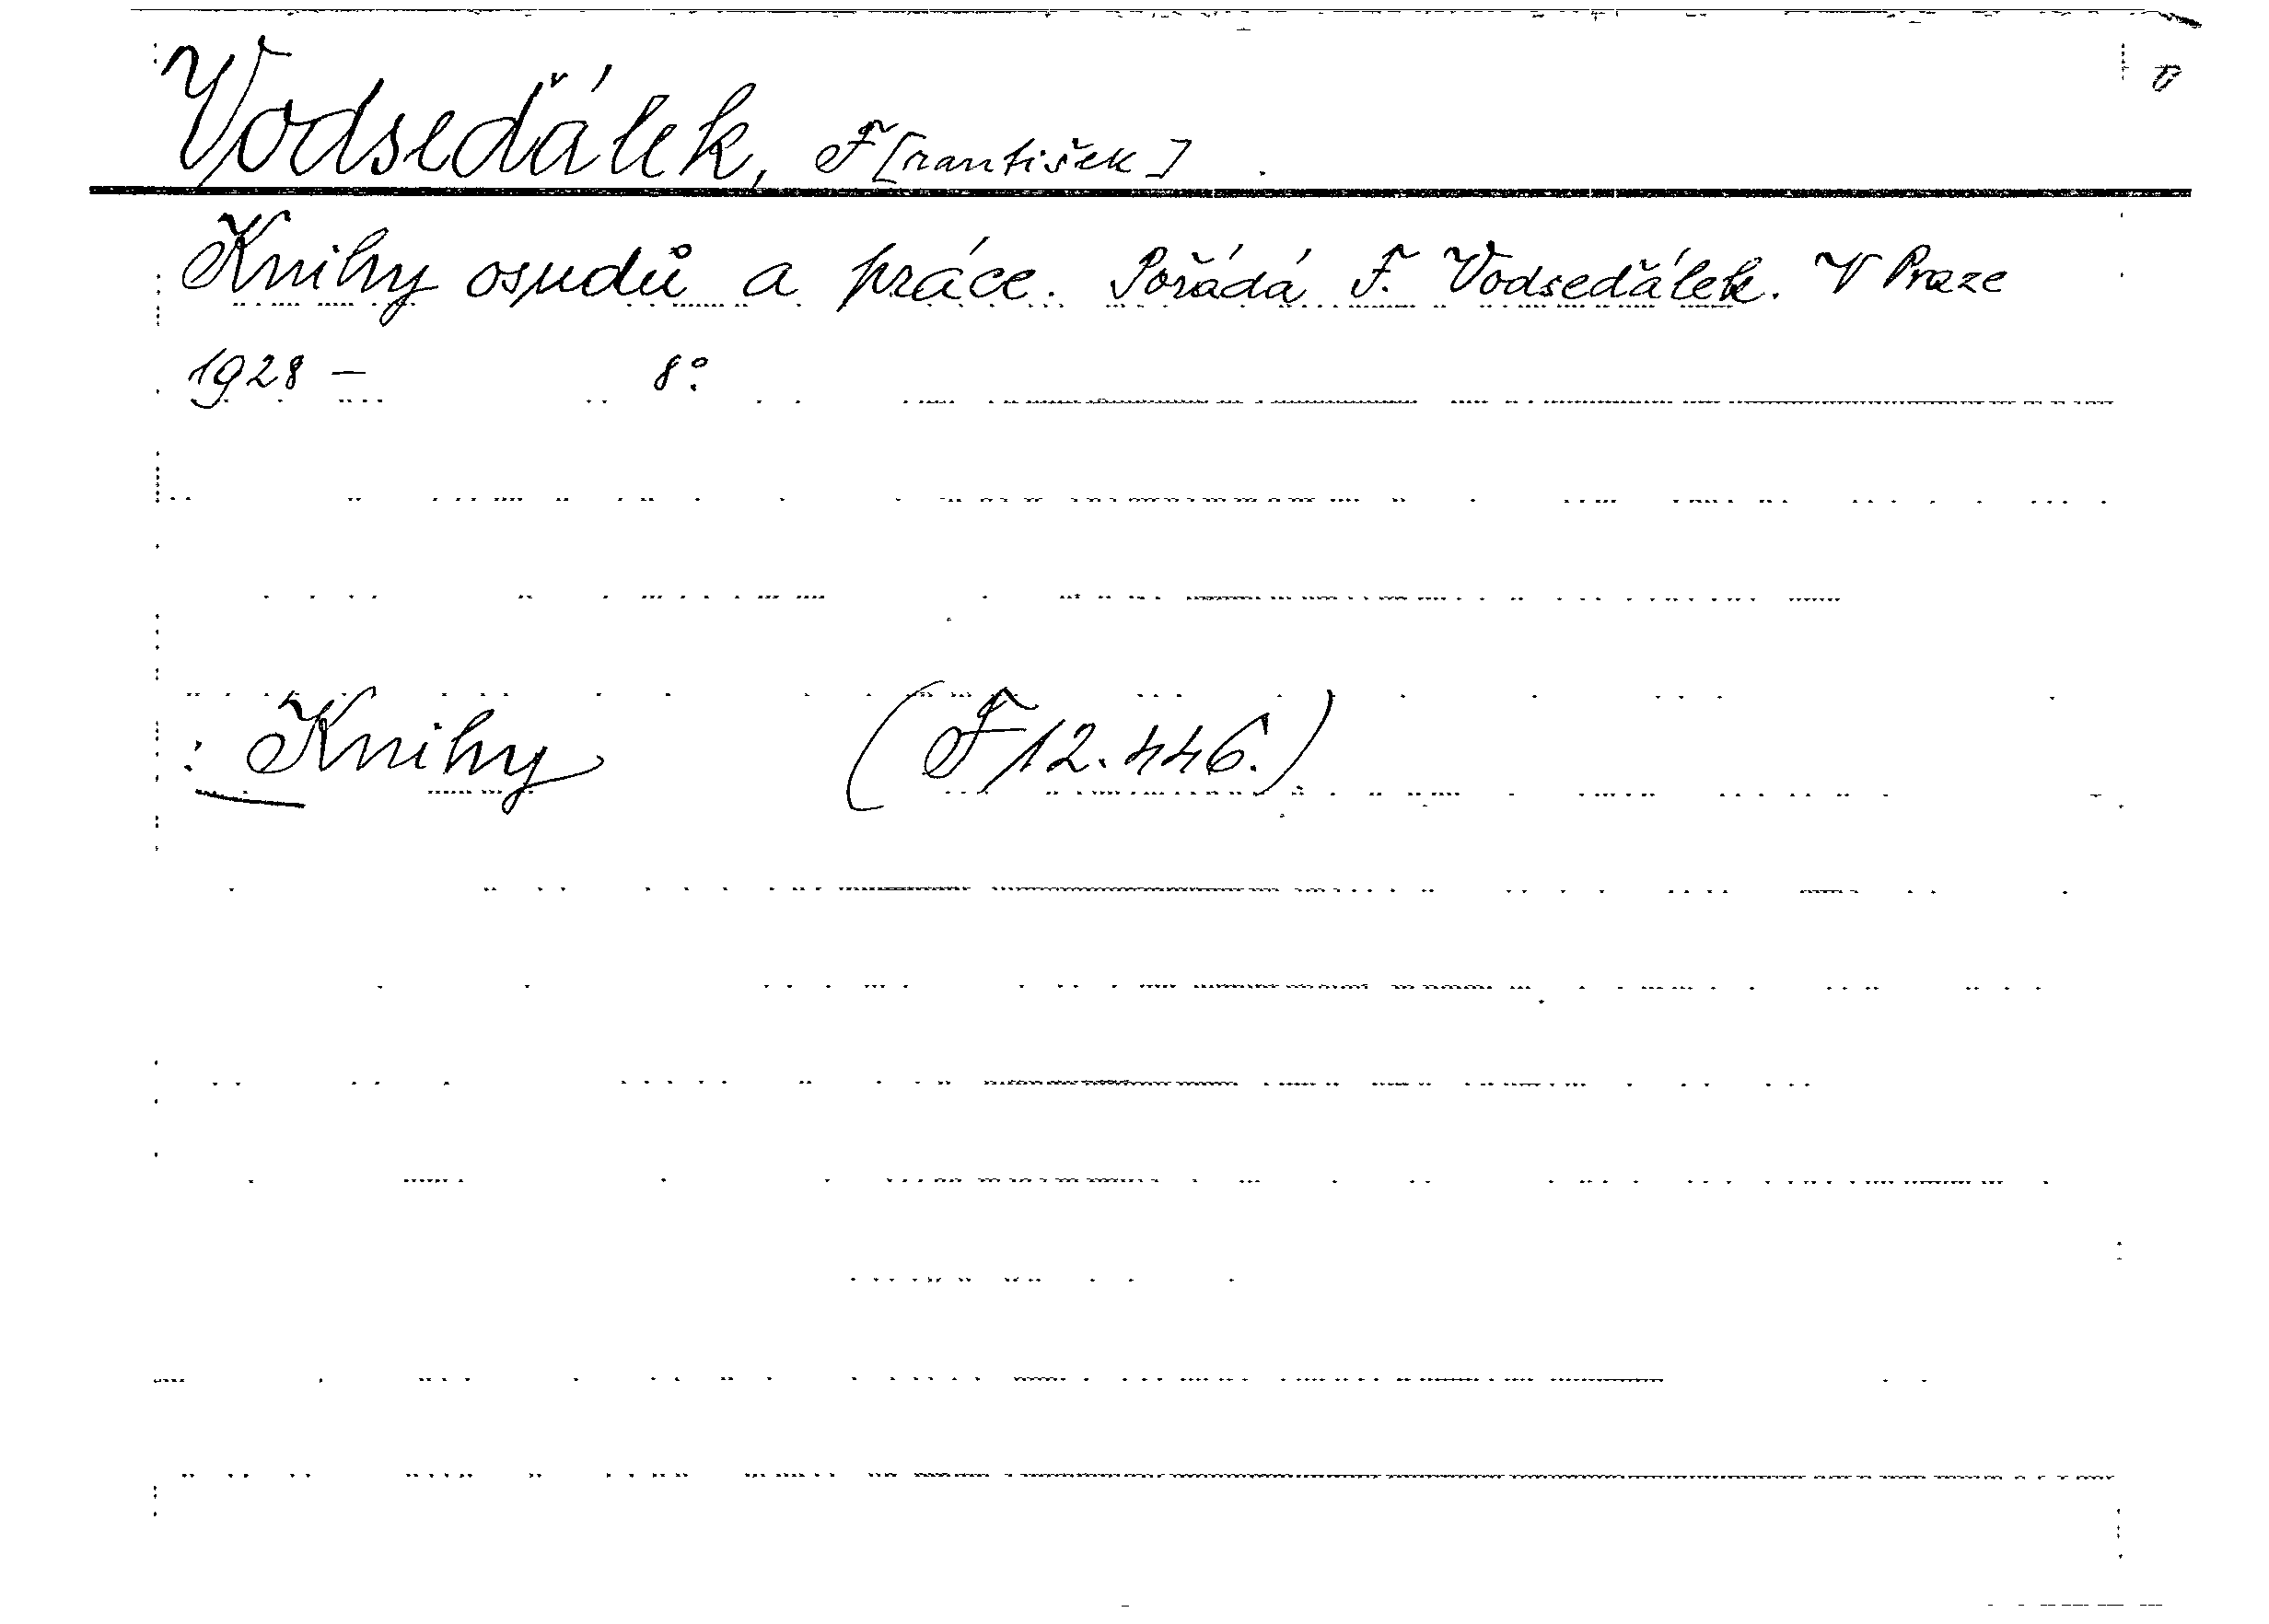 Vodseďálek, F[rantišek]
Knihy osudů a práce. Pořádá F. Vodseďálek. V Praze
1928 – 8°.
: Knihy (F 12.446.)